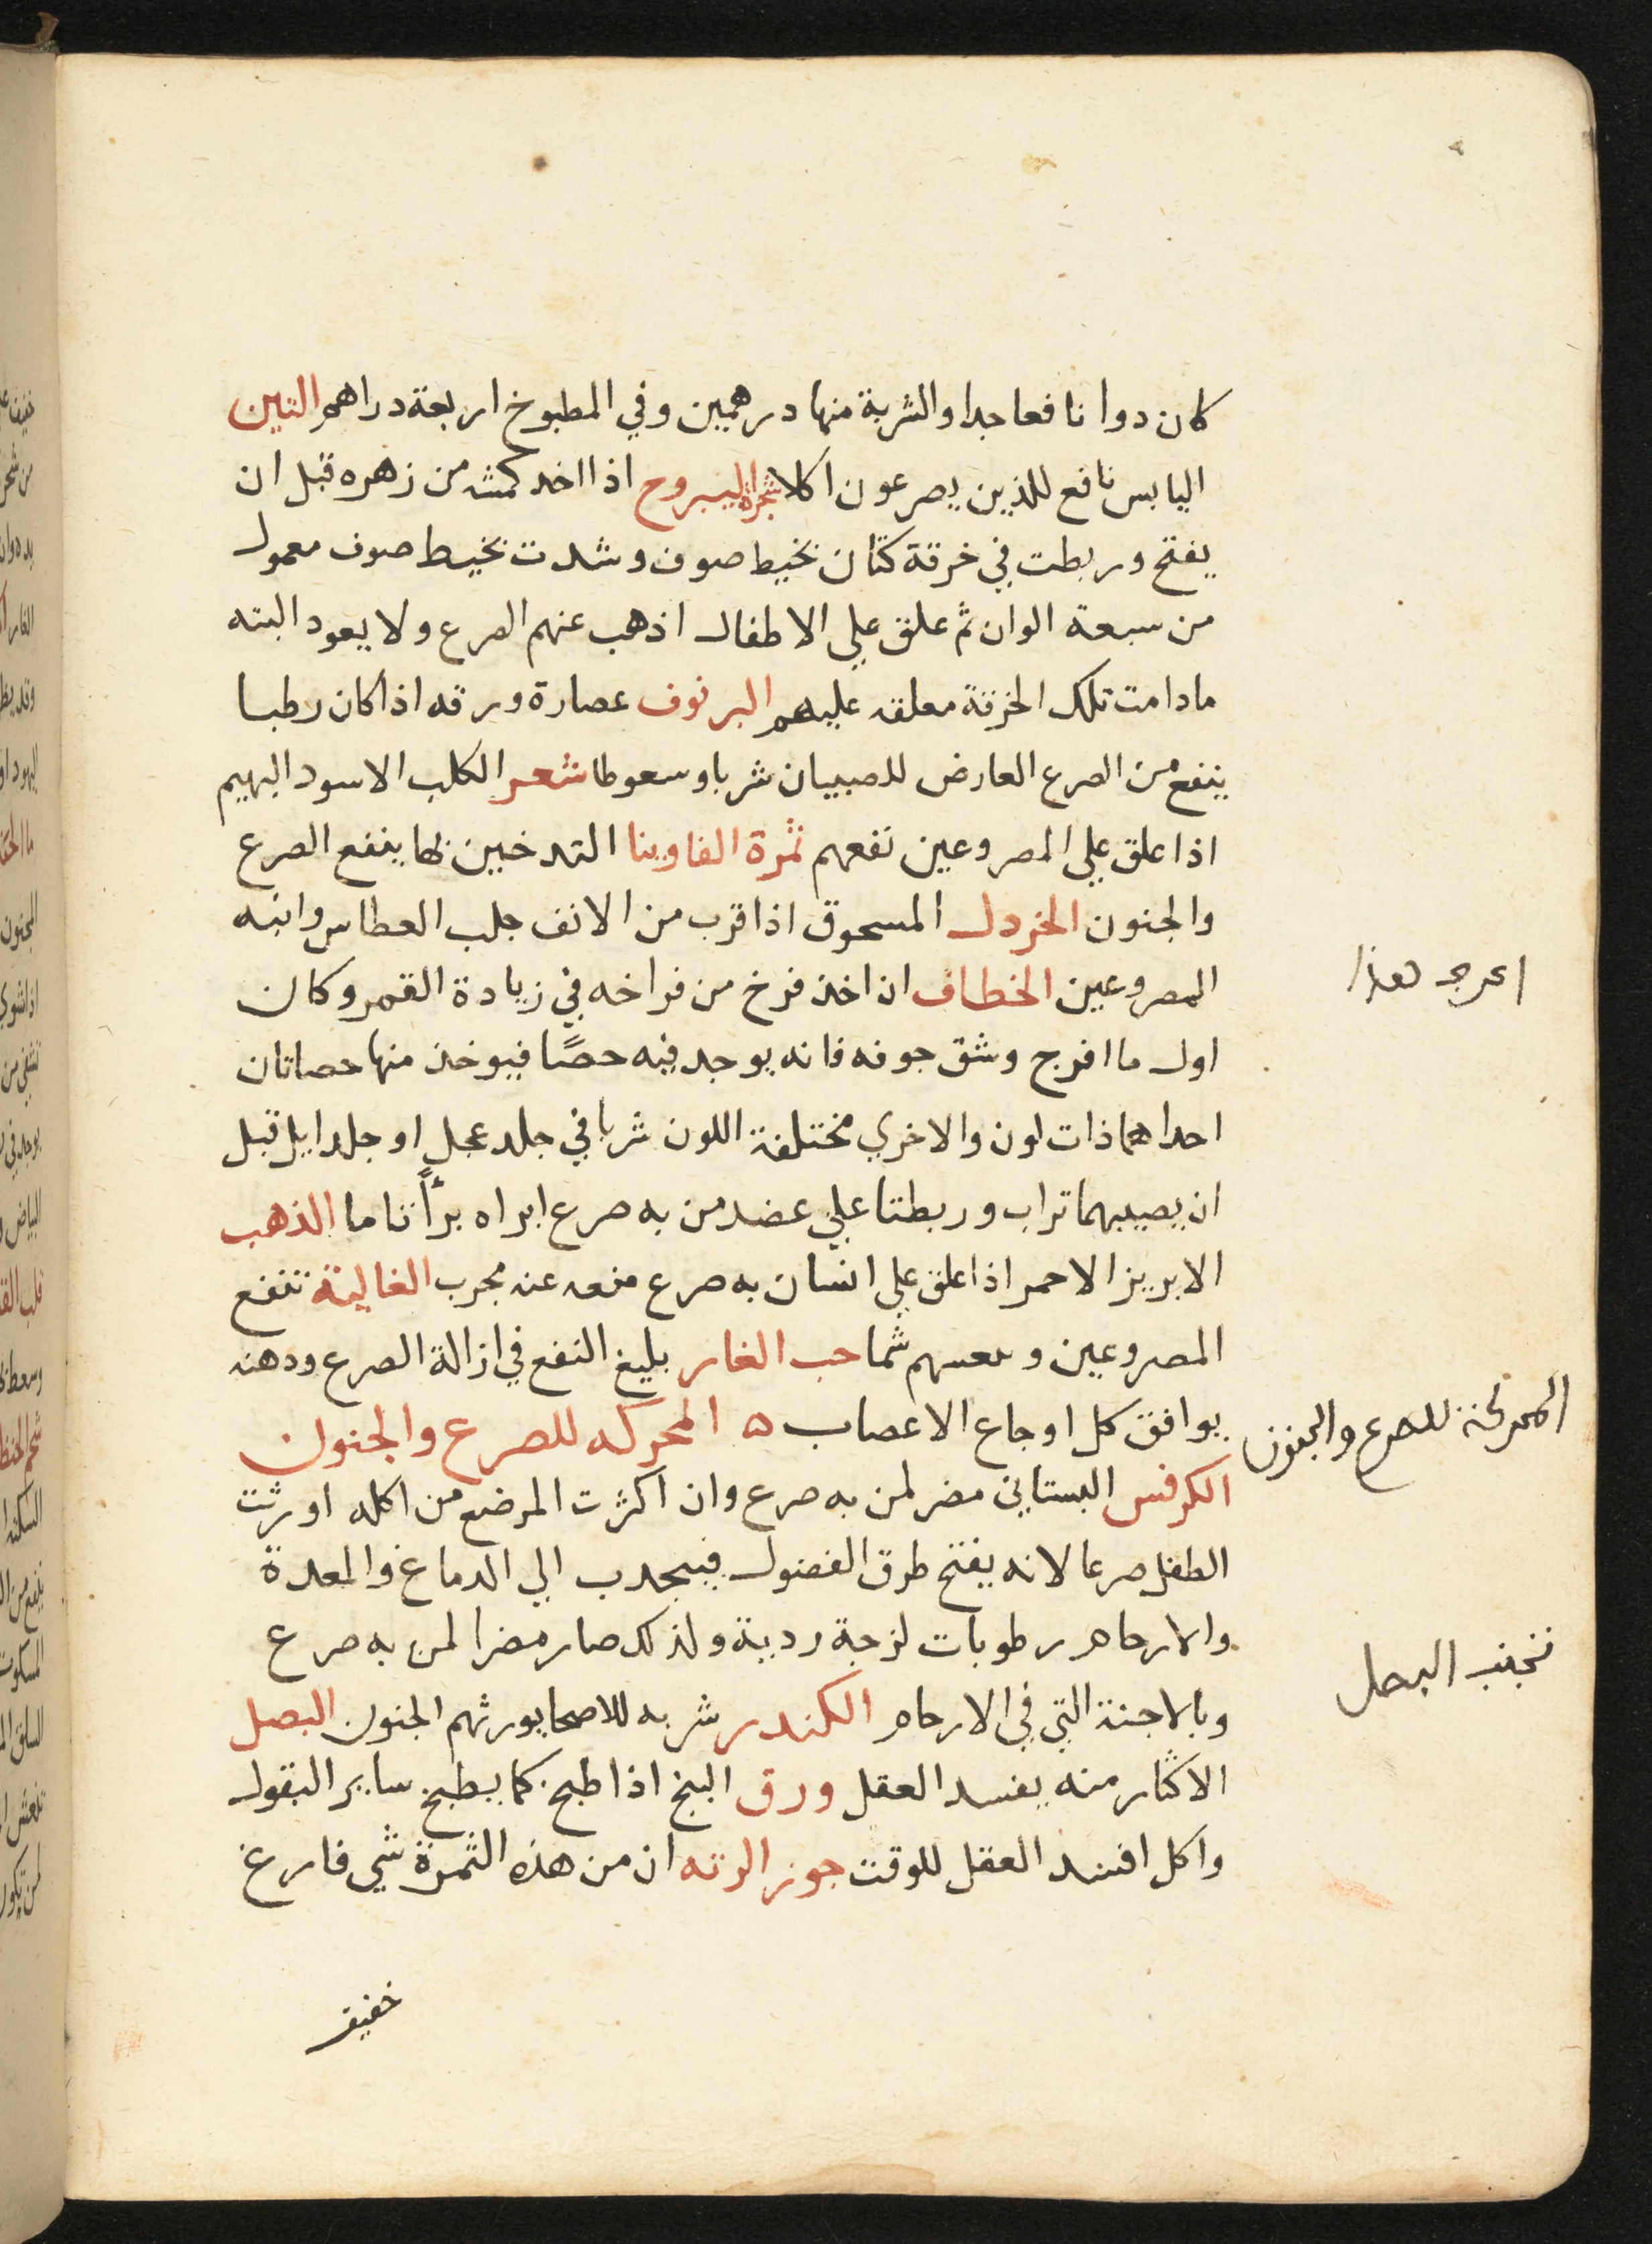 كان دوا نافعا جدا والشربة منها درهمين وفي المطبوخ اربعة دراهم التين
اليابس نافع للذين يصرعون اكلا شجرة اليبروح اذا اخد كمشه من زهره قبل ان
يفتح وربطت في خرقة كتان بخيط صوف وشدت بخيط صوف معمول
من سبعة الوان ثم علق علي الاطفال اذهب عنهم الصرع ولا يعود البته
مادامت تلك الخرقة معلقه عليهم البرنوف عصارة ورقه اذا كان رطبا
ينفع من الصرع العارض للصبيان شربا وسعوطا شعر الكلب الاسود البهيم
اذا علق علي المصروعين نفعهم ثمرة الفاوينا التدخين بها ينفع الصرع
والجنون الخردل المسحوق اذا قرب من الانف جلب العطاس وانبه
المصروعين الخطاف ان اخذ فرخ من فراخه في زيادة القمر وكان
اول ما افرج وشق جوفه فانه يوجد فيه حصًا فيوخذ منها حصاتان
احداهما ذات لون والاخري مختلفة اللون شربا في جلد عجل او جلد ايل قبل
ان يصيبهما تراب وربطتا علي عضد من به صرع ابراه برأً تاما الذهب
الابريز الاحمر اذا علق علي انسان به صرع منعه عنه مجرب الغالية تنفع
المصروعين شما حب الغار بليغ النفع في ازالة الصرع ودهنه
يوافق كل اوجاع الاعصاب ه المحركه للصرع والجنون
الكرفس البستاني مضر لمن به صرع وان اكثرت المرضع من اكله اورثت
الطفل صرعا لانه يفتح طرق الفضول فيجدب الي الدماغ والمعدة
والارحام رطوبات لزجة ردية ولذلك صار مضرا لمن به صرع
وبالاجنة التي في الارحام الكندر شربه للاصحا يورثهم الجنون البصل
الاكثار منه يفسد العقل ورق البنج اذا طبخ كما يطبخ ساير البقول
واكل افسد العقل للوقت جوز الرته ان من هذه الثمرة شي فارغ
خفيف
هذا
المحركة للصرع والجنون
تجنب البصل